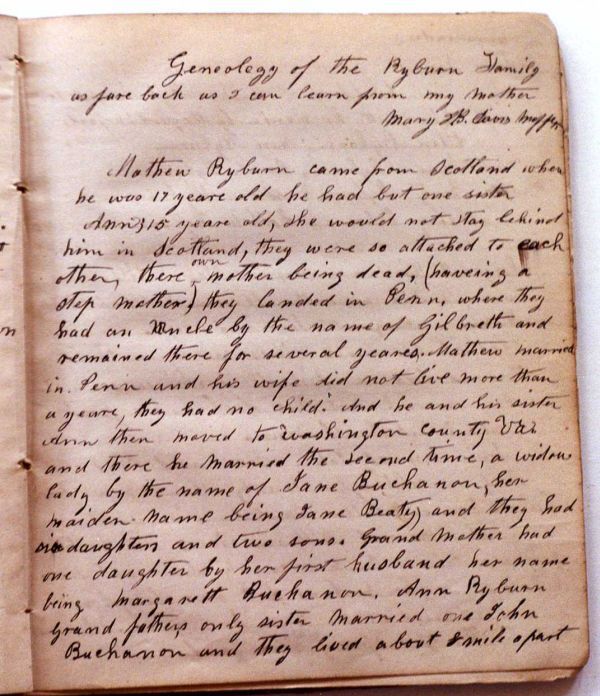 Geneology of the Ryburn Family
as fare back as I can learn from my mother
Mary B. Davis
Mathew Ryburn came from Scotland when
he was 17 yeare old he had but one sister
Ann, 15 yeare old, she would not stay behind
him in Scotland, they were so attached to each
other, there own mother being dead, (haveing a
step mother,) they landed in Penn, where they
had an Uncle by the name of Gilbreth and
remained there for several yeares. Mathew married
in Penn and his wife did not live more than
a yeare, they had no child. And he and his sister
Ann then moved to Washington county Va.
and there he married the second time, a widow
lady by the name of Jane Buchanon, her
maiden name being Jane Beaty, and they had
six daughters and two sons. Grand Mother had
one daughter by her first husband her name
being Margarett Buchanon. Ann Ryburn
grand fathers only sister married one John
Buchanon and they lived about mile apart